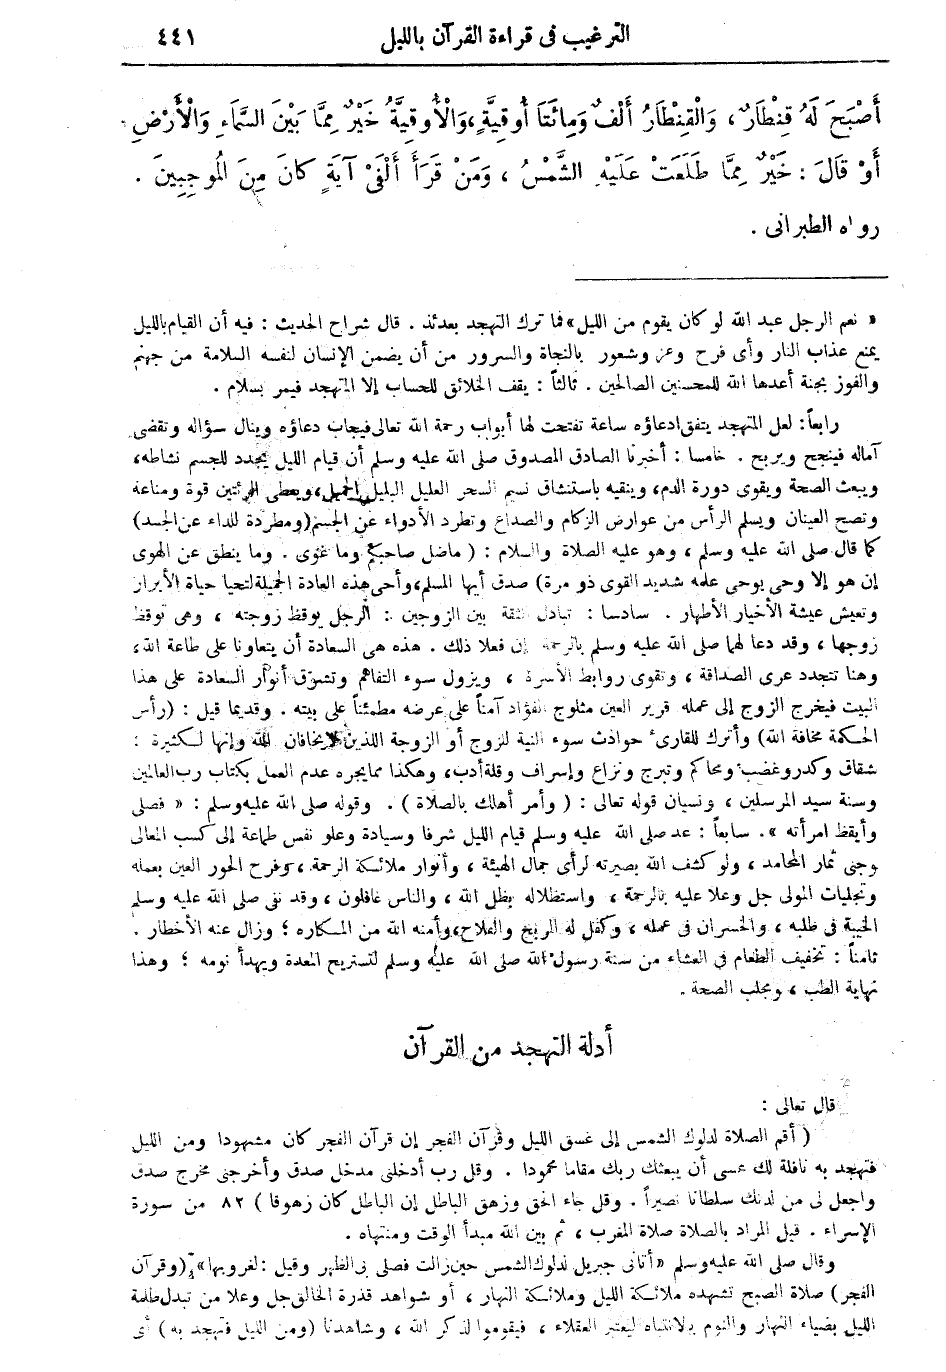 الترغيب فى قراءة القرآن بالليل ٤٤١
أَصْبَحَ لَهُ قِنْطَارٌ، وَالْقِنْطَارُ أَلْفٌ وَمِائَتَا أُوقِيَّةٍ، وَالْأُوقِيَّةُ خَيْرٌ مِمَّا بَيْنَ السَّمَاءِ وَالْأَرْضِ،
أَوْ قَالَ : خَيْرٌ مِمَّا طَلَعَتْ عَلَيْهِ الشَّمْسُ ، وَمَنْ قَرَأَ أَلْفَىْ آيَةٍ كَانَ مِنَ الْمُوجِبِينَ .
رواه الطبرانى .
« نعم الرجل عبد الله لو كان يقوم من الليل» فما ترك التهجد بعدئذ . قال شراح الحديث : فيه أن القيام بالليل
يمنع عذاب النار وأى فرح وعز وشعور بالنجاة والسرور من أن يضمن الإنسان لنفسه السلامة من جهنم
والفوز بجنة أعدها الله للمحسنين الصالحين . ثالثاً : يقف الخلائق للحساب إلا المتهجد فيمر بسلام .
رابعاً: لعل المتهجد يتفق ادعاؤه ساعة تفتحت لها أبواب رحمة الله تعالى فيجاب دعاؤه وينال سؤاله وتقضى
آماله فينجح ويربح . خامسا : أخبرنا الصادق المصدوق صلى الله عليه وسلم أن قيام الليل يجدد للجسم نشاطه،
ويبعث الصحة ويقوى دورة الدم، وينقيه باستنشاق نسيم السحر العليل البليل الجميل، ويعطى الرئتين قوة ومناعة
وتصح العينان ويسلم الرأس من عوارض الزكام والصداع وتطرد الأدواء عن الجسم (ومطردة للداء عن الجسد)
كما قال صلى الله عليه وسلم ، وهو عليه الصلاة والسلام : ( ماضل صاحبكم وما غوى . وما ينطق عن الهوى
إن هو إلا وحى يوحى علمه شديد القوى ذو مرة) صدق أيها المسلم، وأحى هذه العادة الجميلة لتحيا حياة الأبرار
وتعيش عيشة الأخيار الأطهار . سادسا : تبادل الثقة بين الزوجين : الرجل يوقظ زوجته ، وهى توقظ
زوجها ، وقد دعا لهما صلى الله عليه وسلم بالرحمة إن فعلا ذلك . هذه هى السعادة أن يتعاونا على طاعة الله،
وهنا تتجدد عرى الصداقة ، وتقوى روابط الأسرة ، ويزول سوء التفاهم وتشرق أنوار السعادة على هذا
البيت فيخرج الزوج إلى عمله قرير العين مثلوج الفؤاد آمناً على عرضه مطمئناً على بيته . وقديما قيل : (رأس
الحكمة مخافة الله) وأترك للقارئ حوادث سوء النية للزوج أو الزوجة اللذين لا يخافان الله وإنها لكثيرة :
شقاق وكدر وغضب ومحاكم وتبرج ونزاع وإسراف وقلة أدب، وهكذا مما يجره عدم العمل بكتاب رب العالمين
وسنة سيد المرسلين ، ونسيان قوله تعالى : ( وأمر أهلك بالصلاة ) . وقوله صلى الله عليه وسلم : « فصلى
وأيقظ امرأته ». سابعاً : عد صلى الله عليه وسلم قيام الليل شرفا وسيادة وعلو نفس طماعة إلى كسب المعالى
وجنى ثمار المحامد ، ولو كشف الله بصيرته لرأى جمال الهيئة ، وأنوار ملائكة الرحمة ، وفرح الحور العين بعمله
وتجليات المولى جل وعلا عليه بالرحمة ، واستظلاله بظل الله ، والناس غافلون ، وقد نفى صلى الله عليه وسلم
الخيبة فى طلبه ، والخسران فى عمله ، وكفل له الربح والفلاح، وأمنه الله من المكاره ؛ وزال عنه الأخطار .
ثامناً : تخفيف الطعام فى العشاء من سنة رسول الله صلى الله عليه وسلم لتستريح المعدة ويهدأ نومه ؛ وهذا
نهاية الطب ، ومجلب الصحة .
أدلة التهجد من القرآن
قال تعالى :
( أقم الصلاة لدلوك الشمس إلى غسق الليل وقرآن الفجر إن قرآن الفجر كان مشهودا ومن الليل
فتهجد به نافلة لك عسى أن يبعثك ربك مقاما محمودا . وقل رب أدخلنى مدخل صدق وأخرجنى مخرج صدق
واجعل لى من لدنك سلطانا نصيراً . وقل جاء الحق وزهق الباطل إن الباطل كان زهوقا ) ٨٢ من سورة
الإسراء . قيل المراد بالصلاة صلاة المغرب ، ثم بين الله مبدأ الوقت ومنتهاه .
وقال صلى الله عليه وسلم «أتانى جبريل لدلوك الشمس حين زالت فصلى بى الظهر وقيل : لغروبها» (وقرآن
الفجر) صلاة الصبح تشهده ملائكة الليل وملائكة النهار ، أو شواهد قدرة الخالق جل وعلا من تبدل ظلمة
الليل بضياء النهار والنوم بالانتباه ليعتبر العقلاء ، فيقوموا لذكر الله ، وشاهدنا (ومن الليل فتهجد به) أى